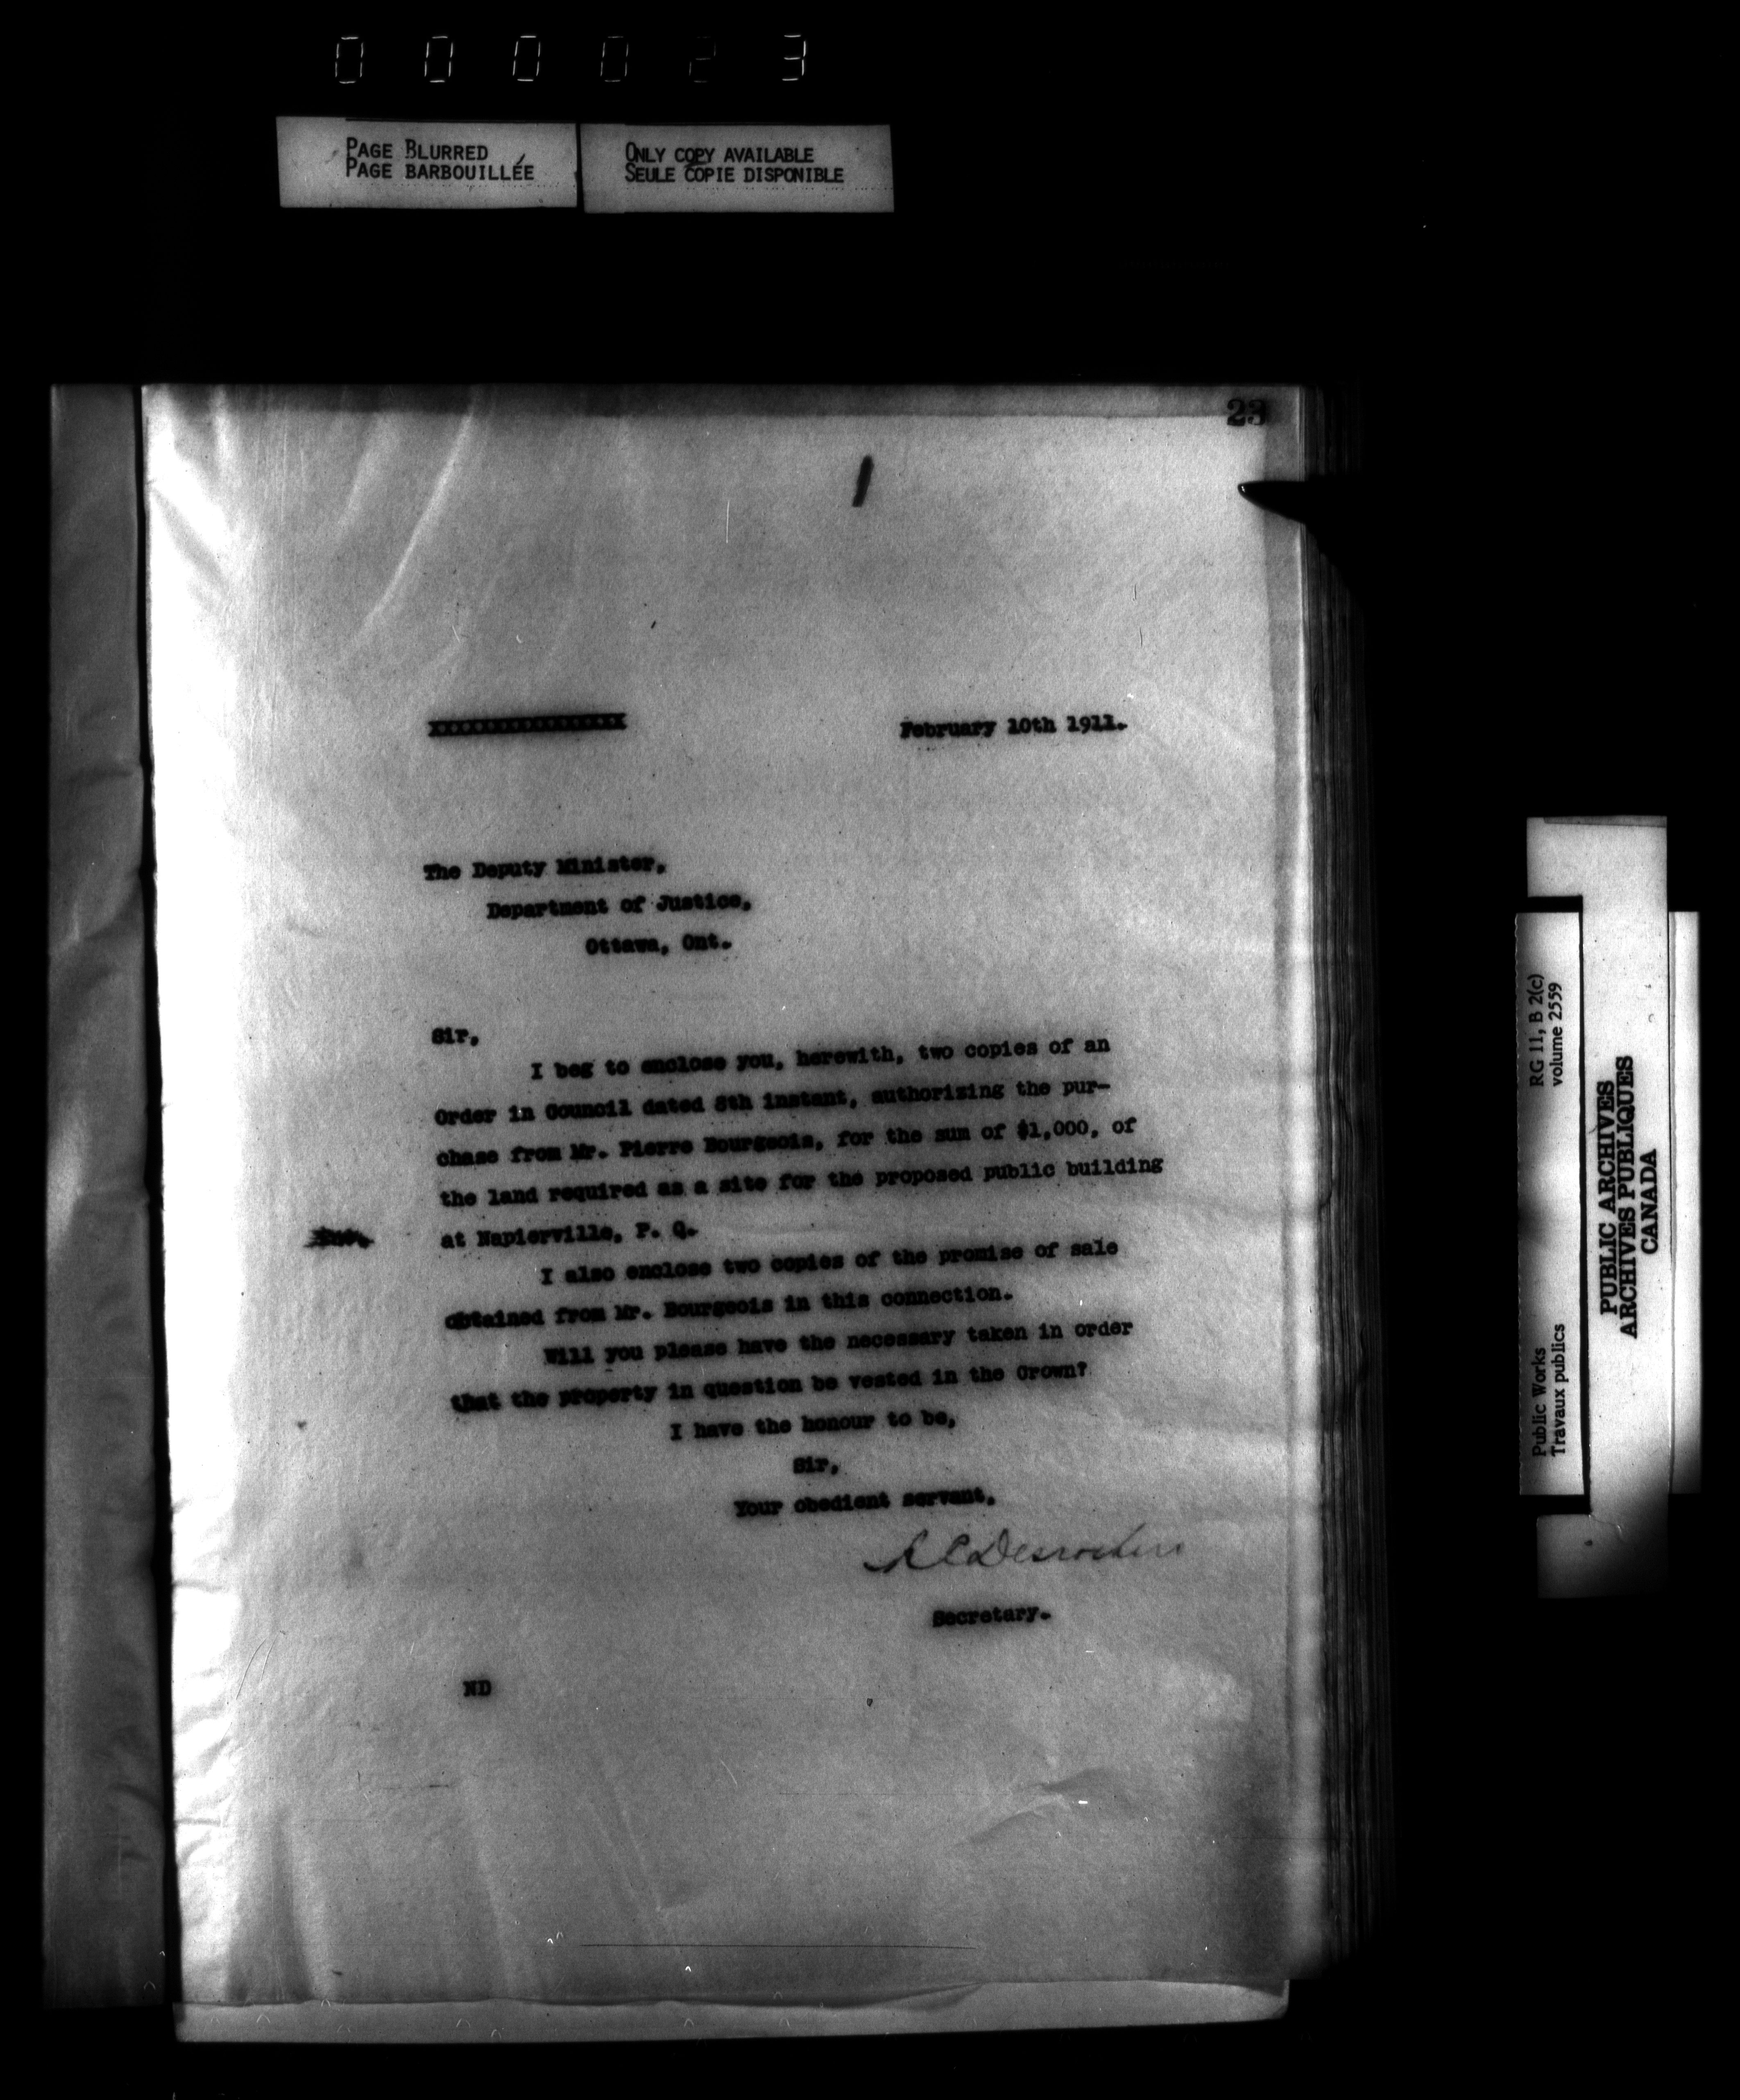 000023
PAGE BLURRED
PAGE BARBOUILLÉE
ONLY COPY AVAILABLE
SEULE COPIE DISPONIBLE
23
xxxxxxxxxxxxxxxxx
February 10th 1911.
The Deputy Minister,
Department of Justice,
Ottawa, Ont.
Sir,
I beg to enclose you, herewith, two copies of an
Order in Council dated 8th instant, authorizing the pur-
chase from Mr. Pierre Bourgeois, for the sum of $1,000, of
the land required as a site for the proposed public building
at Napierville, P. Q.
I also enclose two copies of the promise of sale
obtained from Mr. Bourgeois in this connection.
Will you please have the necessary taken in order
that the property in question be vested in the Crown?
I have the honour to be,
Sir,
Your obedient servant,
R C Desrochers
Secretary.
ND
RG 11, B 2(c)
volume 2559
Public Works
Travaux publics
PUBLIC ARCHIVES
ARCHIVES PUBLIQUES
CANADA